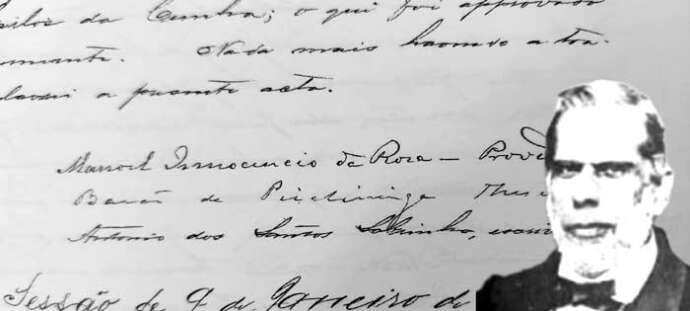 da Cunha; o que foi approvado
Nada mais havendo a tra-
a presente acta.
Manoel Innocencio da Rosa — Prove
Barão de Piratininga Thes
Antonio dos Santos Sobrinho,
Sessão de 9 de Janeiro de